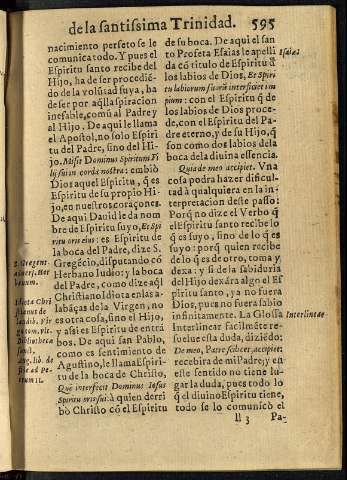 de la santissima Trinidad. 595
nacimiento perfeto se le
comunica todo. Y pues el
Espiritu santo recibe del
Hijo, ha de ser procediẽ-
do de la volũtad suya, ha
de ser por aq̃lla spiracion
inefable, comũ al Padre y
al Hijo. De aqui le llama
el Apostol, no solo Espiri
tu del Padre, sino del Hi-
jo. Misit Dominus Spiritum Fi
lij sui in corda nostra: embiò
Dios aquel Espiritu, q̃ es
Espiritu de su propio Hi-
jo, en nuestros coraçones.
De aqui Dauid le da nom
bre de Espiritu suyo, Et Spi
ritu oris eius: es Espiritu de
la boca del Padre, dize S.
Gregorio, disputando cõ
Herbano Iudio: y la boca
del Padre, como dize aq̃l
Christiano Idiota en las a-
labãças de la Virgen, no
es otra cosa, sino el Hijo,
y assi es Espiritu de entrã
bos. De aqui san Pablo,
como es sentimiento de
Agustino, le llama Espiri-
tu de la boca de Christo,
Que interfecit Dominus Iesus
Spiritu oris sui: à quien derri
bò Christo cõ el Espiritu
S. Gregen.
Herbanum.
Idiota Chri
stianus de
laudib. Vir
Bibliotheca
Aug. lib. de
de su boca. De aqui el san
to Profeta Esaias le apelli
da cõ titulo de Espiritu ð
los labios de Dios, Et Spiri
tu labiorum suorũ interficiet im
pium: con el Espiritu q̃ de
los labios de Dios proce-
de, con el Espiritu del Pa
dre eterno, y de su Hijo, q̃
son como dos labios de la
boca de la diuina essencia.
Quia de meo accipiet. Vna
cosa podra hazer dificul-
tad à qualquiera en la in-
terpretacion deste passo:
Porq̃ no dize el Verbo q̃
el Espiritu santo recibe lo
q̃ es suyo, sino de lo q̃ es
suyo: porq̃ quien recibe
de lo q̃ es de otro, toma y
dexa: y si de la sabiduria
del Hijo dexàra algo el Es
piritu santo, ya no fuera
Dios, pues no fuera sabio
infinitamente. La Glossa
Interlinear facilmẽte re-
fuelue esta duda, diziẽdo:
De meo, Patre scilicet, accipiet:
recebira de mi Padre; y en
este sentido no tiene lu-
gar la duda, pues todo lo
q̃ el diuino Espiritu tiene,
todo se lo comunicò el
Isaiæ.
Interlineae
ll 3 Pa-